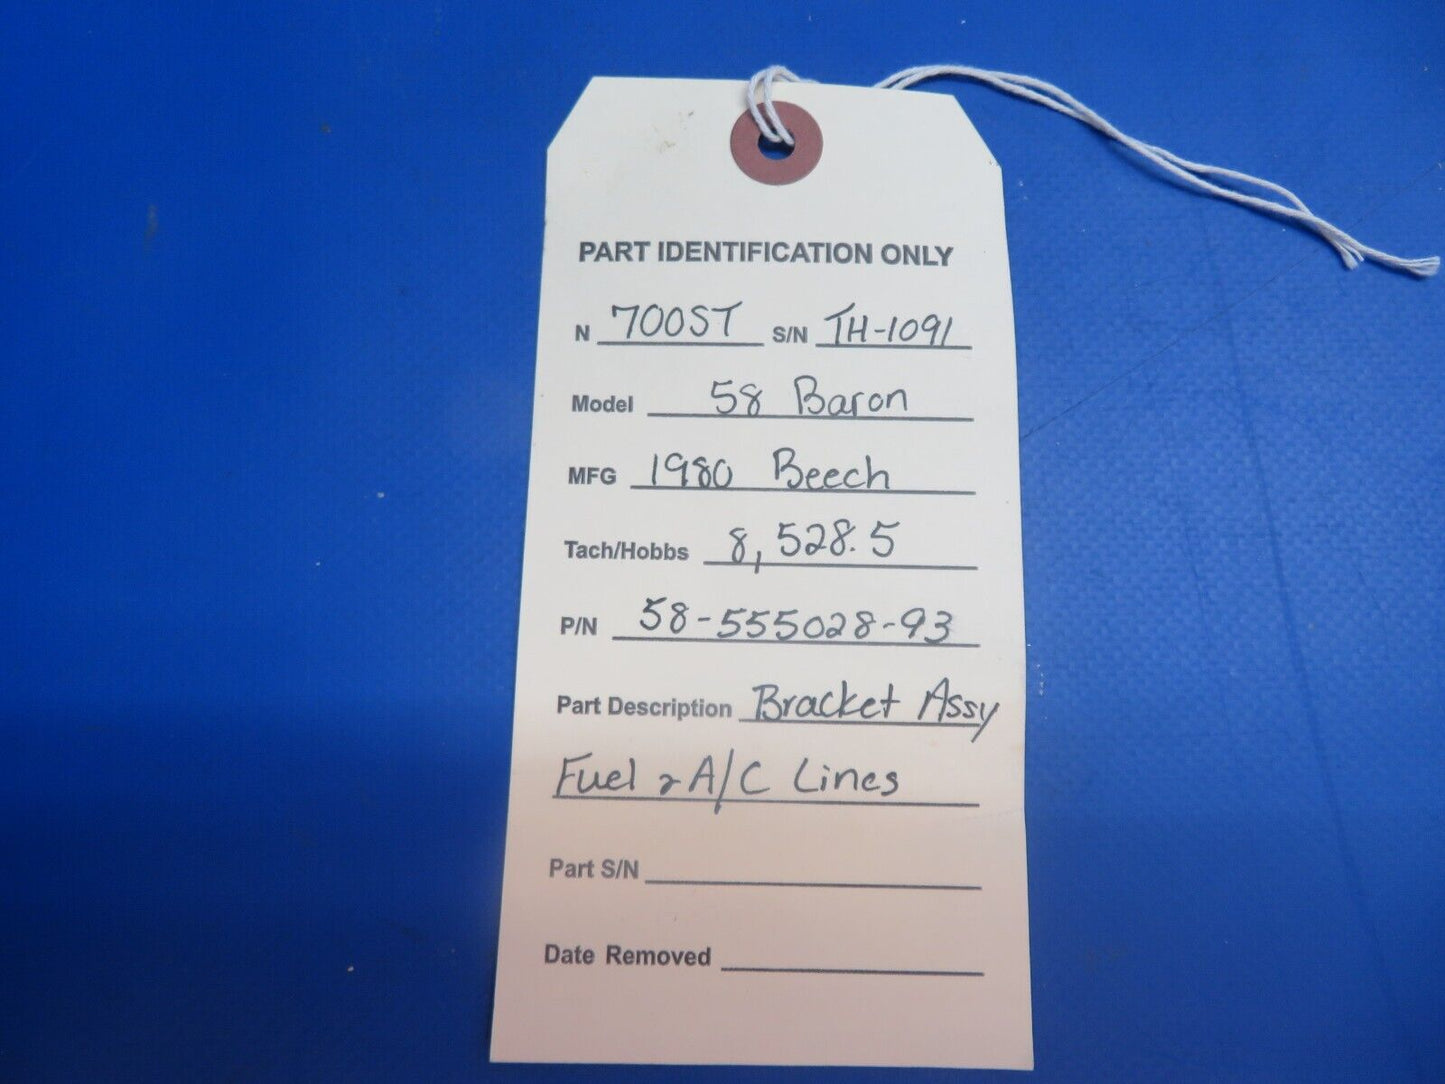 PART IDENTIFICATION ONLY
N 700ST S/N TH-1091
Model 58 Baron
MFG 1980 Beech
Tach/Hobbs 8,528.5
P/N 58-555028-93
Part Description Bracket Assy
Fuel & A/C Lines
Part S/N
Date Removed